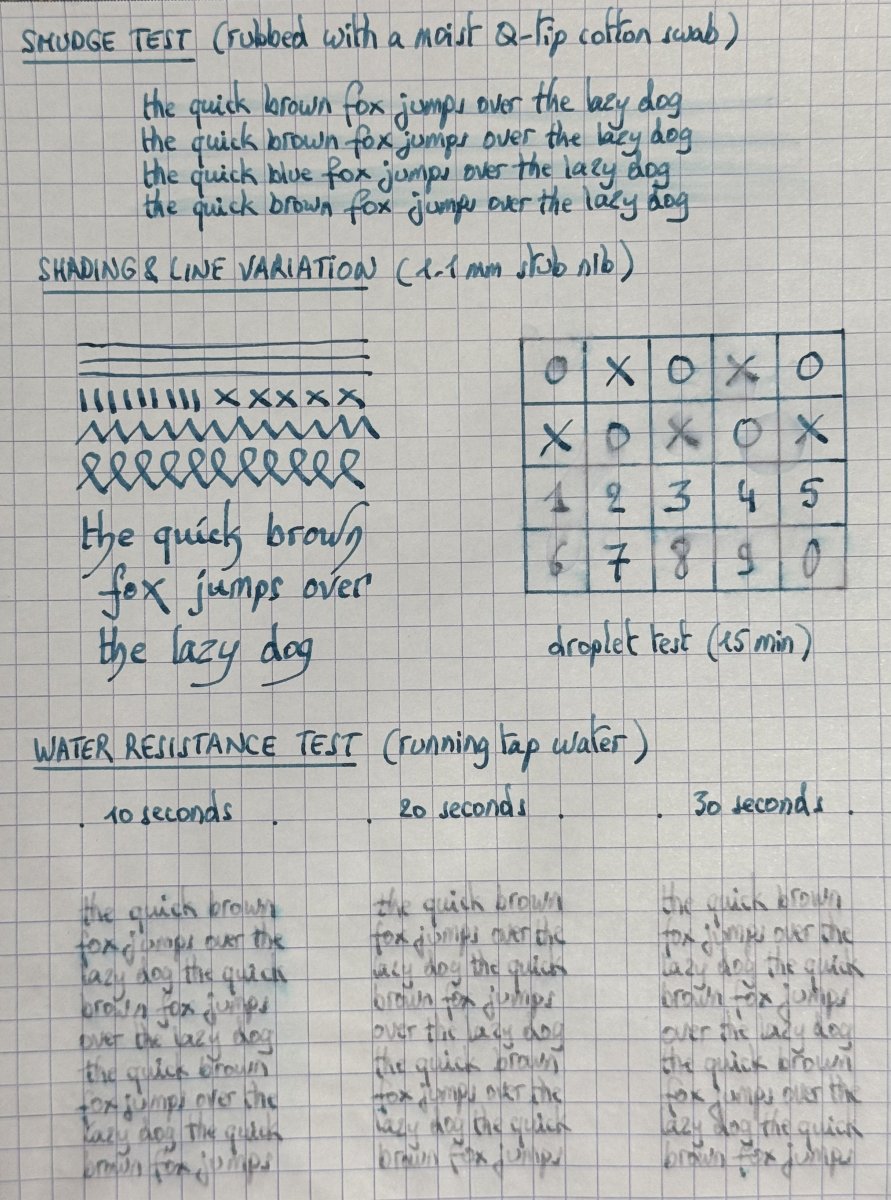 SMUDGE TEST (rubbed with a moist Q-tip cotton swab)
the quick brown fox jumps over the lazy dog
the quick brown fox jumps over the lazy dog
the quick blue fox jumps over the lazy dog
the quick brown fox jumps over the lazy dog
SHADING & LINE VARIATION (1.1 mm stub nib)
the quick brown
fox jumps over
the lazy dog
O X O X O
X O X O X
1 2 3 4 5
6 7 8 9 0
droplet test (15 min)
WATER RESISTANCE TEST (running tap water)
. 10 seconds .
. 20 seconds .
. 30 seconds .
the quick brown
fox jumps over the
lazy dog the quick
brown fox jumps
over the lazy dog
the quick brown
fox jumps over the
lazy dog the quick
brown fox jumps
the quick brown
fox jumps over the
lazy dog the quick
brown fox jumps
over the lazy dog
the quick brown
fox jumps over the
lazy dog the quick
brown fox jumps
the quick brown
fox jumps over the
lazy dog the quick
brown fox jumps
over the lazy dog
the quick brown
fox jumps over the
lazy dog the quick
brown fox jumps